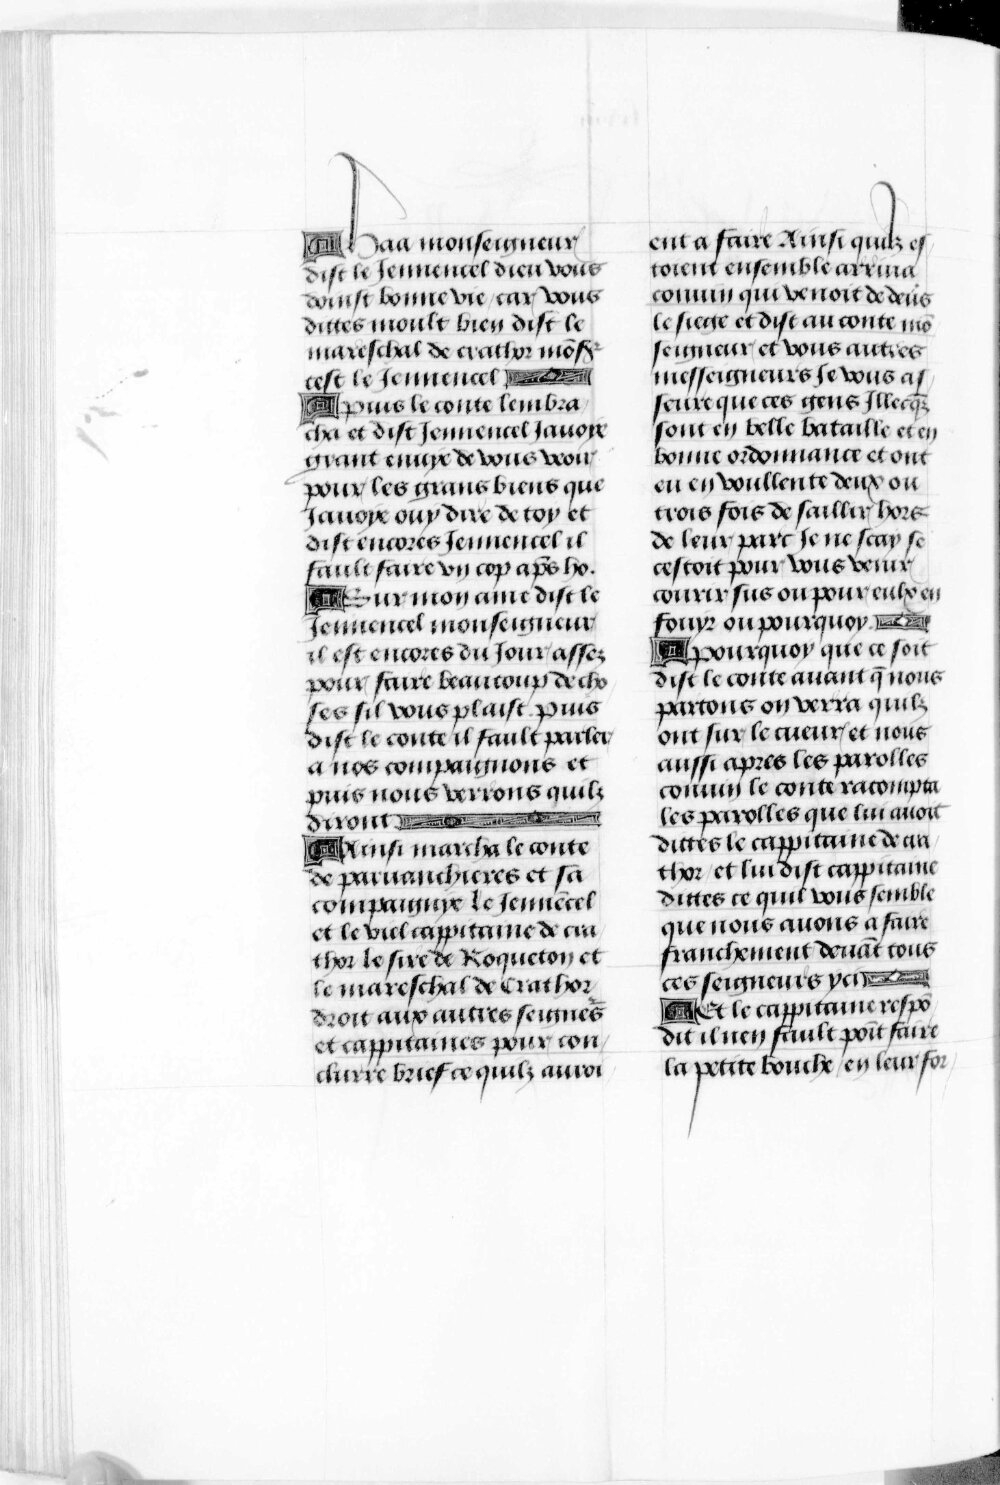 Haa monseigneur
dist le Jennencel dieu vous
doinst bonne vie / car vous
dittes moult bien dist le
mareschal de crathor mōsr
cest le Jennencel
puis le conte lembra /
cha et dist Jennencel Javoye
grant enuye de vous veoir
pour les grans biens que
Javoye ouy dire de toy et
dist encores Jennencel il
fault faire vn cop aps ho.
Sur mon ame dist le
Jennencel monseigneur
il est encores du Jour assez
pour faire beaucoup de cho /
ses sil vous plaist. puis
dist le conte il fault parler
a nos compaignons et
puis nous verrons quilz
diront
Ainsi marcha le conte
de paruanchieres et sa
compaignye le Jennēcel
et le viel cappitaine de cra /
thor le sire de Roqueton et
le mareschal de Crathor
droit aux autres seignēs
et cappitaines pour con /
clurre brief ce quilz auroi
ent a faire Ainsi quilz es /
toient ensemble arriua
connin qui venoit de deūs
le siege et dist au conte mō
seigneur / et vous autres
messeigneurs Je vous as /
seure que ces gens Illecq̄s
sont en belle bataille et en
bonne ordonnance et ont
eu en voullente deux ou
trois fois de saillir hors
de leur parc Je ne scay se
cestoit pour vous venir
courir sus ou pour eulx en
fouyr ou pourquoy.
pourquoy que ce soit
dist le conte auant q̄ nous
partons on verra quilz
ont sur le cueur / et nous
aussi apres les parolles
connin le conte racompta
les parolles que lui auoit
dittes le cappitaine de cra /
thor / et lui dist cappitaine
dittes ce quil vous semble
que nous auons a faire
franchement deuāt tous
ces seigneurs ycy
Et le cappitaine respō
dit il nen fault poīt faire
la petite bouche / en leur for /